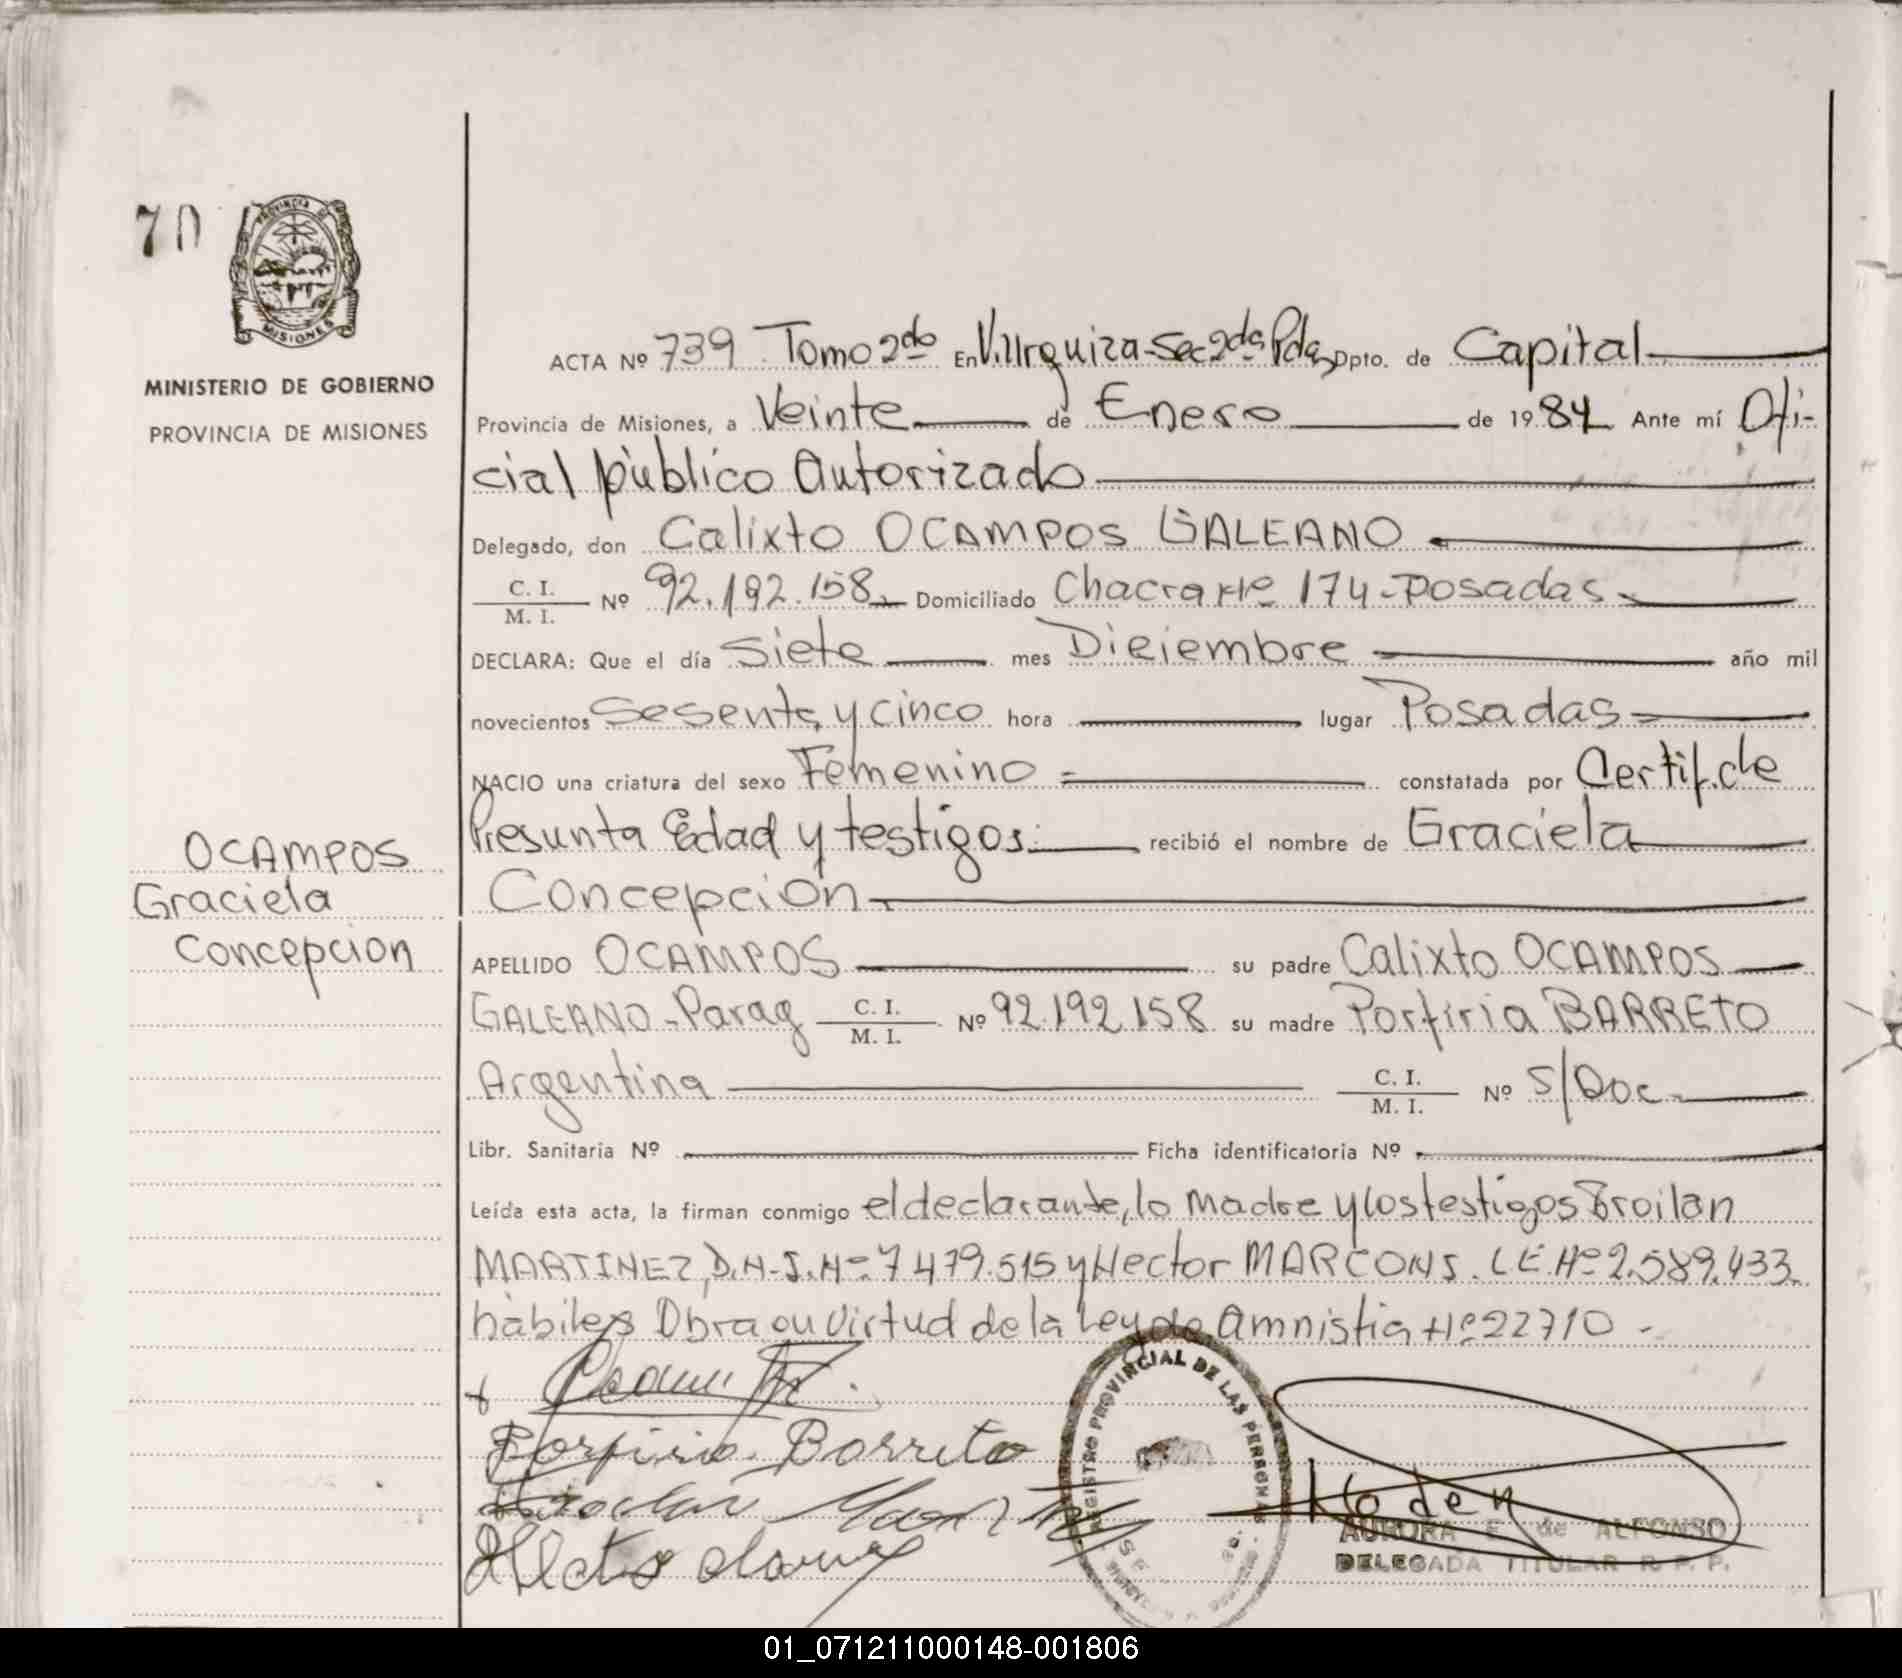 70
PROVINCIA DE
MISIONES
MINISTERIO DE GOBIERNO
PROVINCIA DE MISIONES
OCAMPOS
Graciela
Concepcion
ACTA Nº 739 Tomo 2do En V. Urquiza-Sec 2da Pdas Dpto. de Capital
Provincia de Misiones, a Veinte de Enero de 1984 Ante mí Ofi-
cial público Autorizado
Delegado, don Calixto OCAMPOS GALEANO
C. I.
M. I. Nº 92.192.158 Domiciliado Chacra Nº 174-Posadas
DECLARA: Que el día Siete mes Diciembre año mil
novecientos Sesenta y cinco hora lugar Posadas
NACIO una criatura del sexo Femenino constatada por Certif. de
Presunta Edad y testigos. recibió el nombre de Graciela
Concepción
APELLIDO OCAMPOS su padre Calixto OCAMPOS
GALEANO-Parag C. I.
M. I. Nº 92.192.158 su madre Porfiria BARRETO
Argentina C. I.
M. I. Nº S/Doc.
Libr. Sanitaria Nº Ficha identificatoria Nº
Leída esta acta, la firman conmigo el declarante, la Madre y los testigos Froilan
MARTINEZ, D.N.I. Nº 7479.515 y Hector MARCONS. LE Nº 2.589.433
hábiles Obra en virtud de la Ley de Amnistia Nº 22710 -
Porfiria Barreto
REGISTRO PROVINCIAL DE LAS PERSONAS
AURORA E. de ALFONSO
DELEGADA TITULAR R. P. P.
01_071211000148-001806